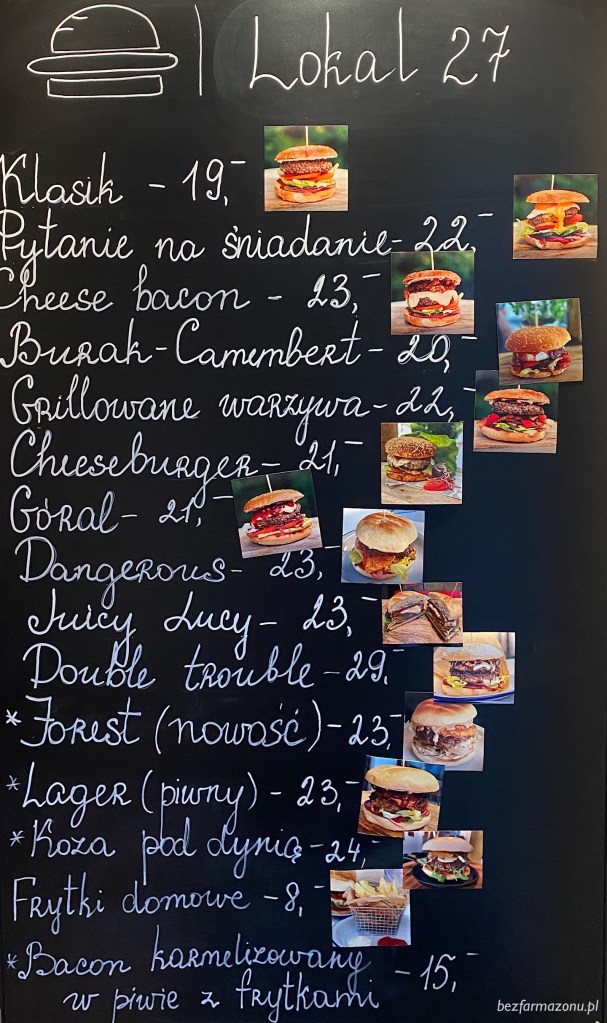 Lokal 27
Klasik - 19,-
Pytanie na śniadanie - 22,-
Cheese bacon - 23,-
Burak-Camembert - 20,-
Grillowane warzywa - 22,-
Cheeseburger - 21,-
Góral - 21,-
Dangerous - 23,-
Juicy Lucy - 23,-
Double trouble - 29,-
*Forest (nowość) - 23,-
*Lager (piwny) - 23,-
*Koza pod dynią - 24,-
Frytki domowe - 8,-
*Bacon karmelizowany
w piwie z frytkami - 15,-
bezfarmazonu.pl